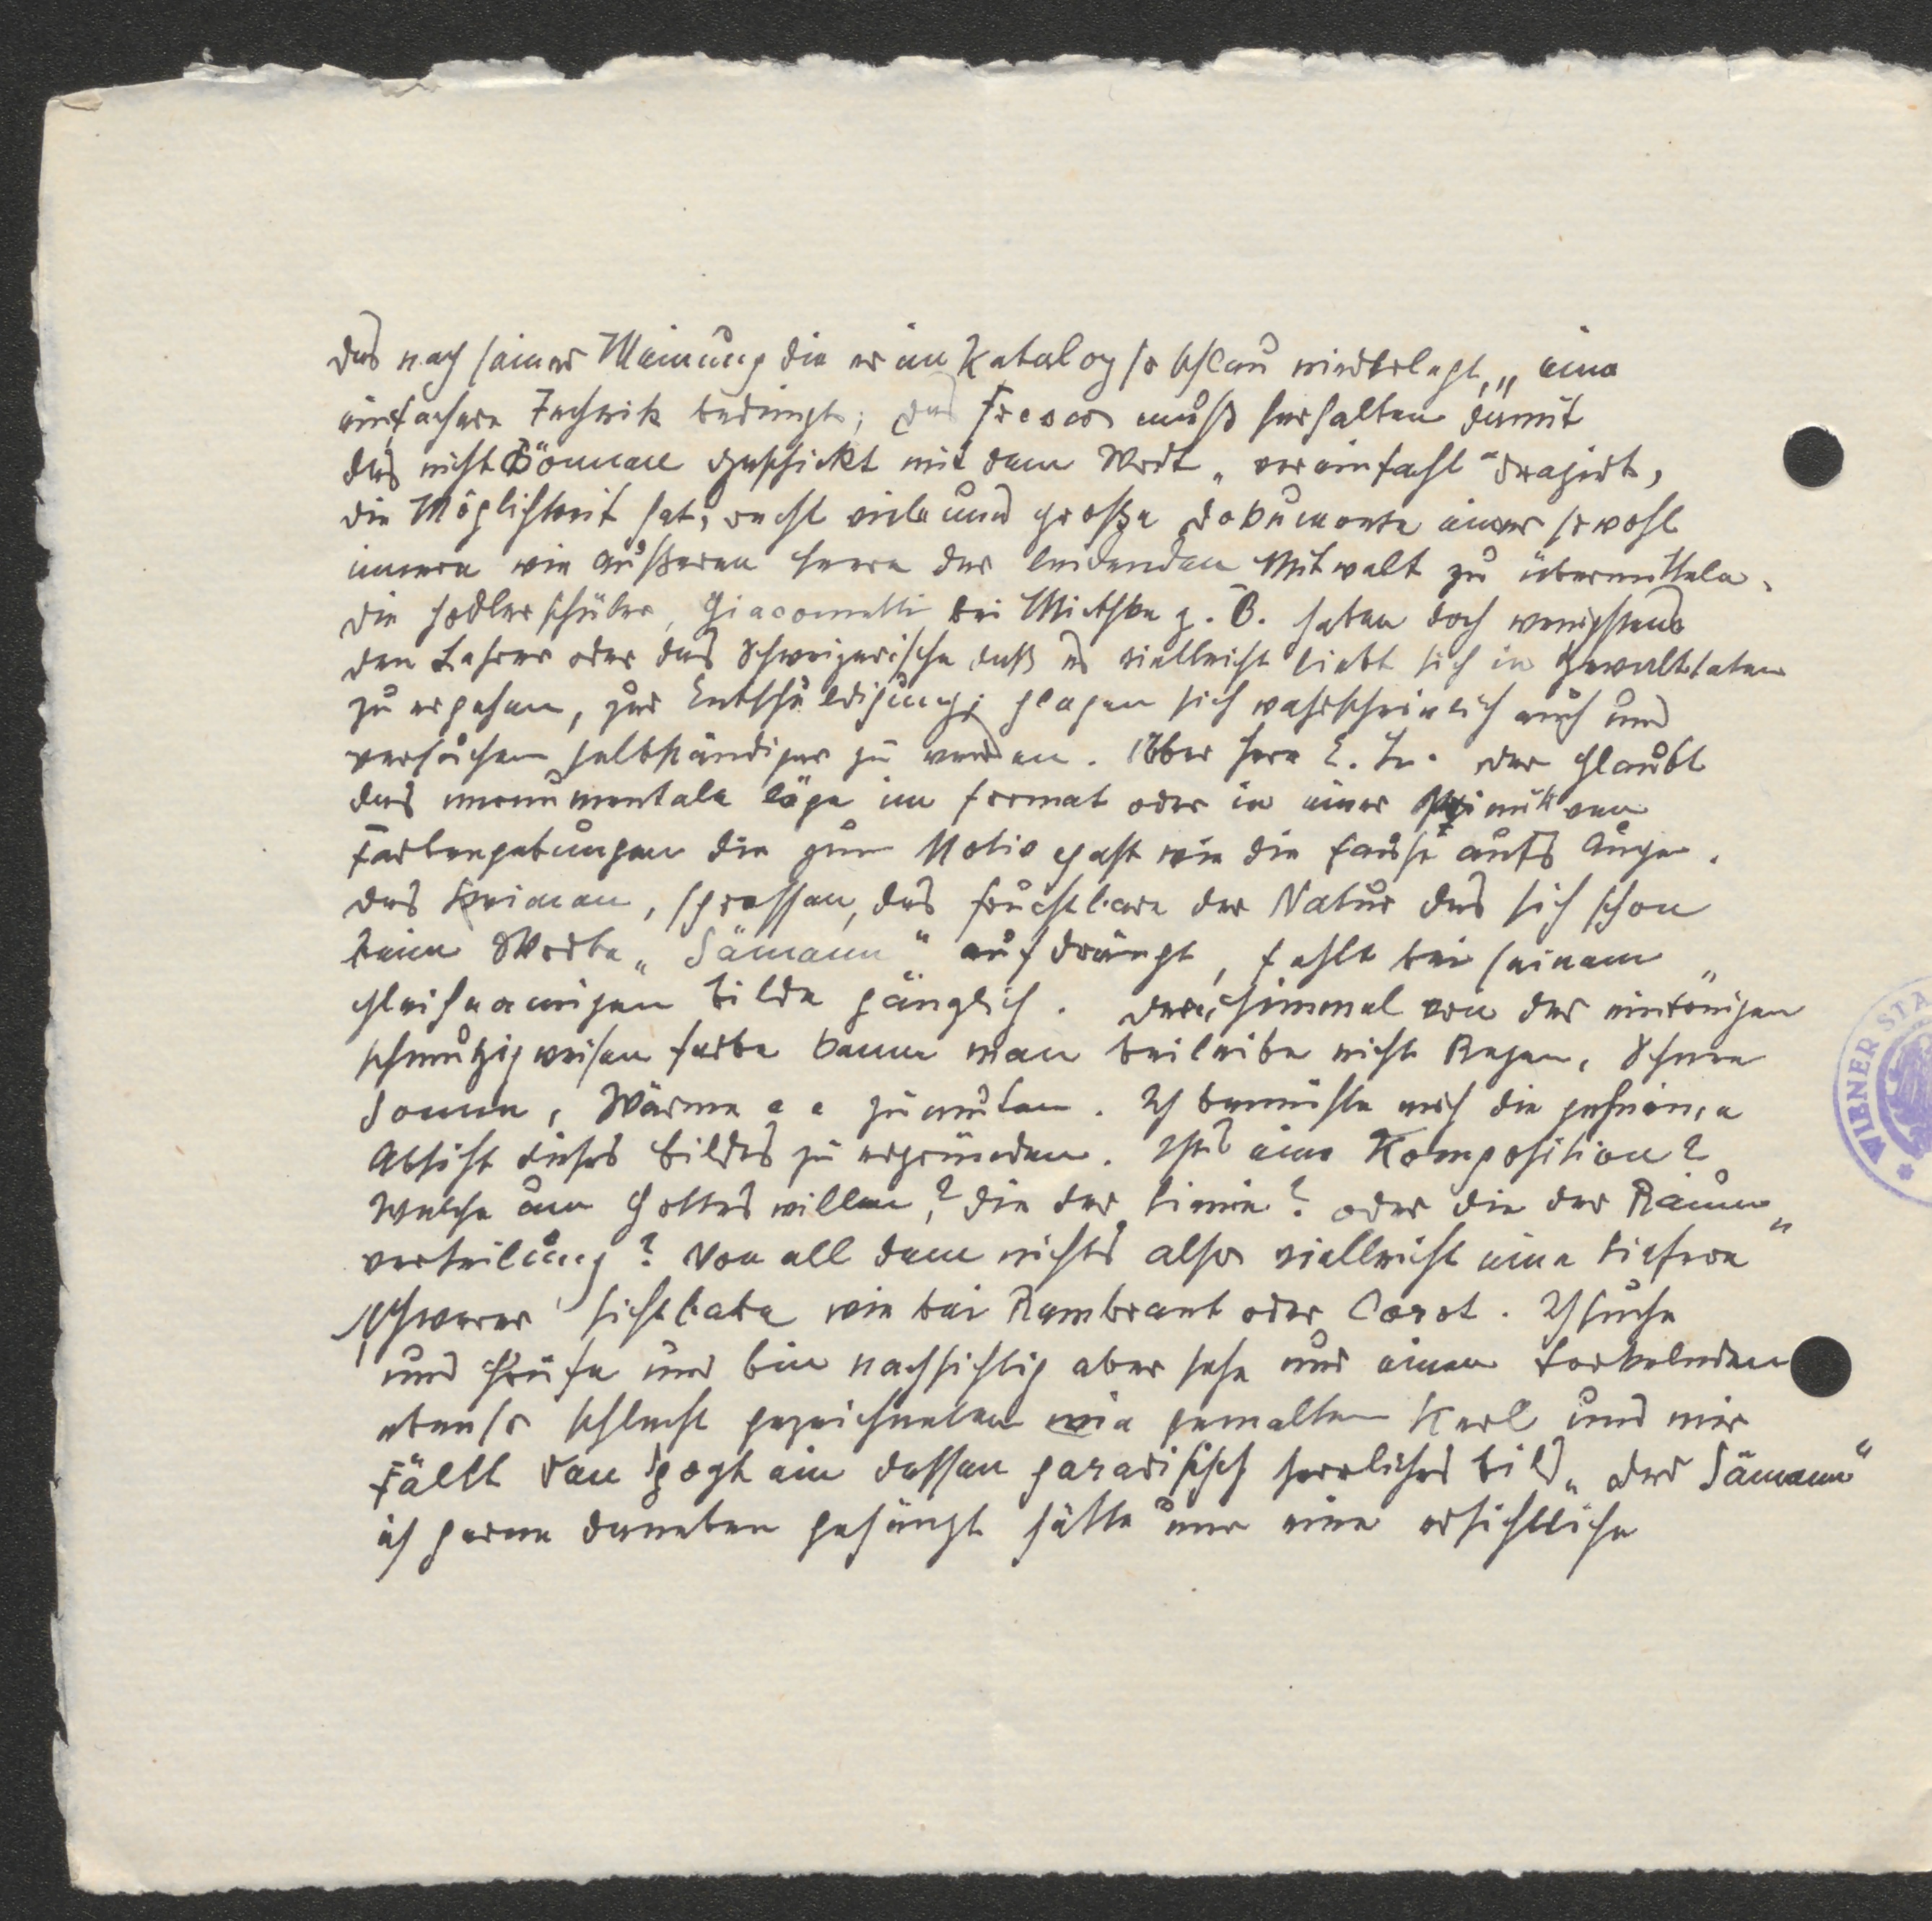 das nach seiner Meinung die er im Katalog so schlau niederlegt, „eine
einfachere Technik bedingt; das Fresco muß herhalten damit
das nicht Können geschickt mit dem Wort „vereinfacht“ drapirt,
die Möglichkeit hat, recht viele und große Dokumente einer sowohl
innern wie äußeren Leere der leidenden Mitwelt zu übermitteln.
Die Hodlerschüler, Giacometti bei Miethke z. B. haben doch wenigstens
den Lehrer oder das Schweizerische daß es vielleicht liebt sich in Gewalttaten
zu ergehen, zur Entschuldigung; plagen sich wahrscheinlich auch und
versuchen selbständiger zu werden. Aber Herr der glaubt
das monumentale läge im Format oder in einer primitiven
Farbengebungen die zum Motiv paßt wie die Faust aufs Auge.
Das Keimen, sprossen, das fruchtbare der Natur das sich schon
beim Worte „Sämann“ aufdrängt, fehlt bei seinem
gleichnamigen Bilde gänzlich. Dem Himmel von der eintönigen
schmutzigweisen Farbe kann man beileibe nicht Regen, Schnee
Sonne, Wärme zumuten. Ich bemühte mich die geheime
Absicht dieses Bildes zu ergründen. Ists eine Komposition?
Welche um Gottes willen? die der Linie? oder die der Raum„
verteilung? Von all dem nichts also vielleicht eine tiefere“
schwerer sichtbare wie bei Rembrant oder Corot. Ich suche
und prüfe und bin nachsichtig aber sehe nur einen torkelnden
ebenso schlecht gezeichneten wie gemalten Kerl und mir
fällt Van Gogh ein dessen paradisisch herrliches Bild „der Sämann“
ich gerne daneben gehängt hätte um eine ersichtliche
WIENER STA